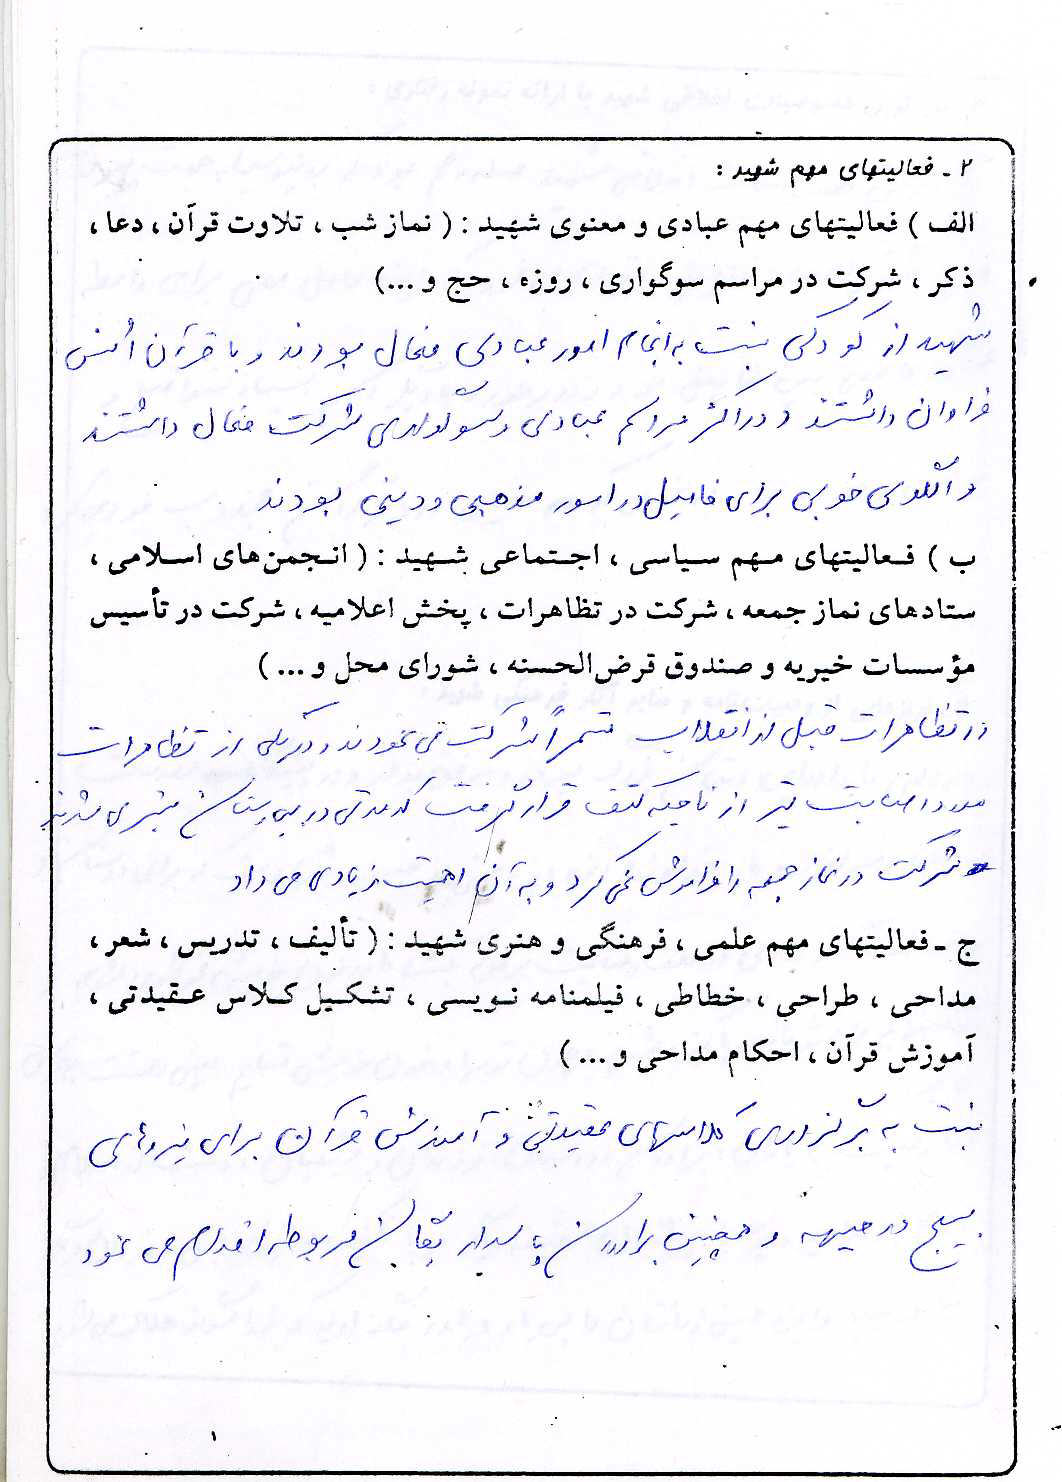 ۲ ـ فعالیتهای مهم شهید :
الف ) فعالیتهای مهم عبادی و معنوی شهید : ( نماز شب ، تلاوت قرآن ، دعا ،
ذکر ، شرکت در مراسم سوگواری ، روزه ، حج و ...)
شهید از کودکی نسبت به انجام امور عبادی فعال بودند و با قرآن اُنس
فراوان داشتند و در اکثر مراسم عبادی و سوگواری شرکت فعال داشتند
و الگوی خوبی برای فامیل در امور مذهبی و دینی بودند
ب ) فـعالیتهای مـهم سـیاسی ، اجـتماعی شـهید : ( انـجمن‌های اسـلامی ،
ستادهای نماز جمعه ، شرکت در تظاهرات ، پخش اعلامیه ، شرکت در تأسیس
مؤسسات خیریه و صندوق قرض‌الحسنه ، شورای محل و ... )
در تظاهرات قبل از انقلاب مستمراً شرکت می نمودند و در یکی از تظاهرات
مورد اصابت تیر از ناحیه کتف قرار گرفت که مدتی در بیمارستان بستری شدند
شرکت در نماز جمعه را فراموش نمی کرد و به آن اهمیت زیادی می داد
ج ـ فعالیتهای مهم علمی ، فرهنگی و هنری شهید : ( تألیف ، تدریس ، شعر ،
مداحی ، طراحی ، خطاطی ، فیلمنامه نـویسی ، تشکـیل کـلاس عـقیدتی ،
آموزش قرآن ، احکام مداحی و ... )
نسبت به برگزاری کلاسهای عقیدتی و آموزش قرآن برای نیروهای
بسیج در جبهه و همچنین برادران پاسدار مربوطه اقدام می نمود
۱